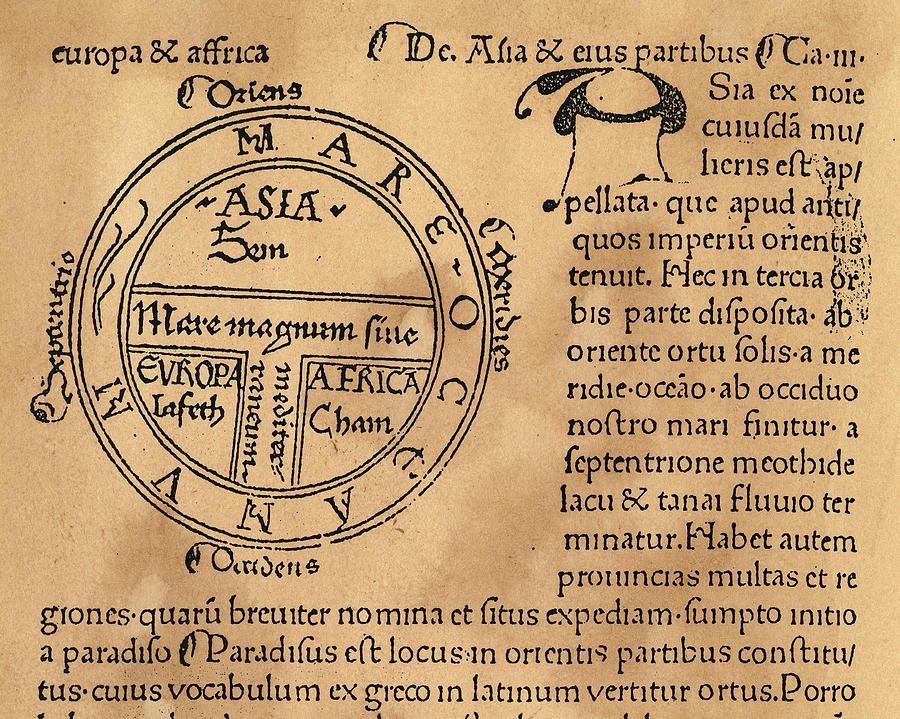 europa & affrica
De. Asia & eius partibus Ca·iii·
Oriens
MARE OCCEANUM
Septentrio
Meridies
ASIA
Sem
Mare magnum siue
EVROPA
Iafeth
mediter
raneum
AFRICA
Cham
Occidens
ASia ex noīe
cuiusdā mu/
lieris est ap/
pellata· que apud anti/
quos imperiū orientis
tenuit. Hec in tercia or
bis parte disposita· ab
oriente ortu solis·a me
ridie·oceāo·ab occiduo
nostro mari finitur· a
septentrione meothide
lacu & tanai fluuio ter
minatur.Habet autem
prouincias multas et re
giones·quarū breuiter nomina et situs expediam·sumpto initio
a paradiso Paradisus est locus in orientis partibus constitu/
tus·cuius vocabulum ex greco in latinum vertitur ortus.Porro